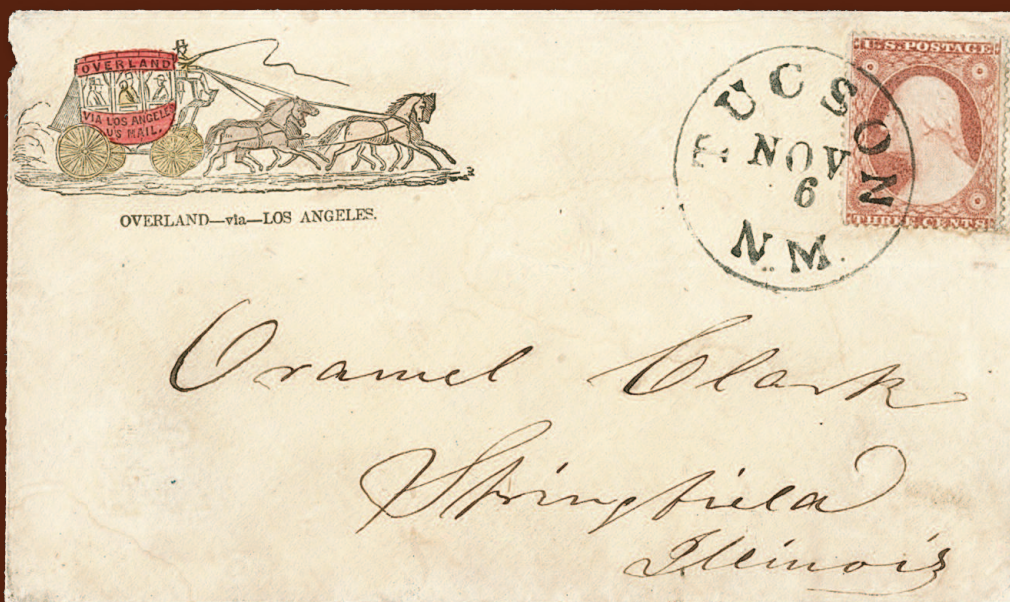 OVERLAND
VIA LOS ANGELES
U'S MAIL.
OVERLAND—via—LOS ANGELES.
TUCSON
NOV
6
N.M.
U.S. POSTAGE
THREE CENTS
Oramel Clark
Springfield
Illinois